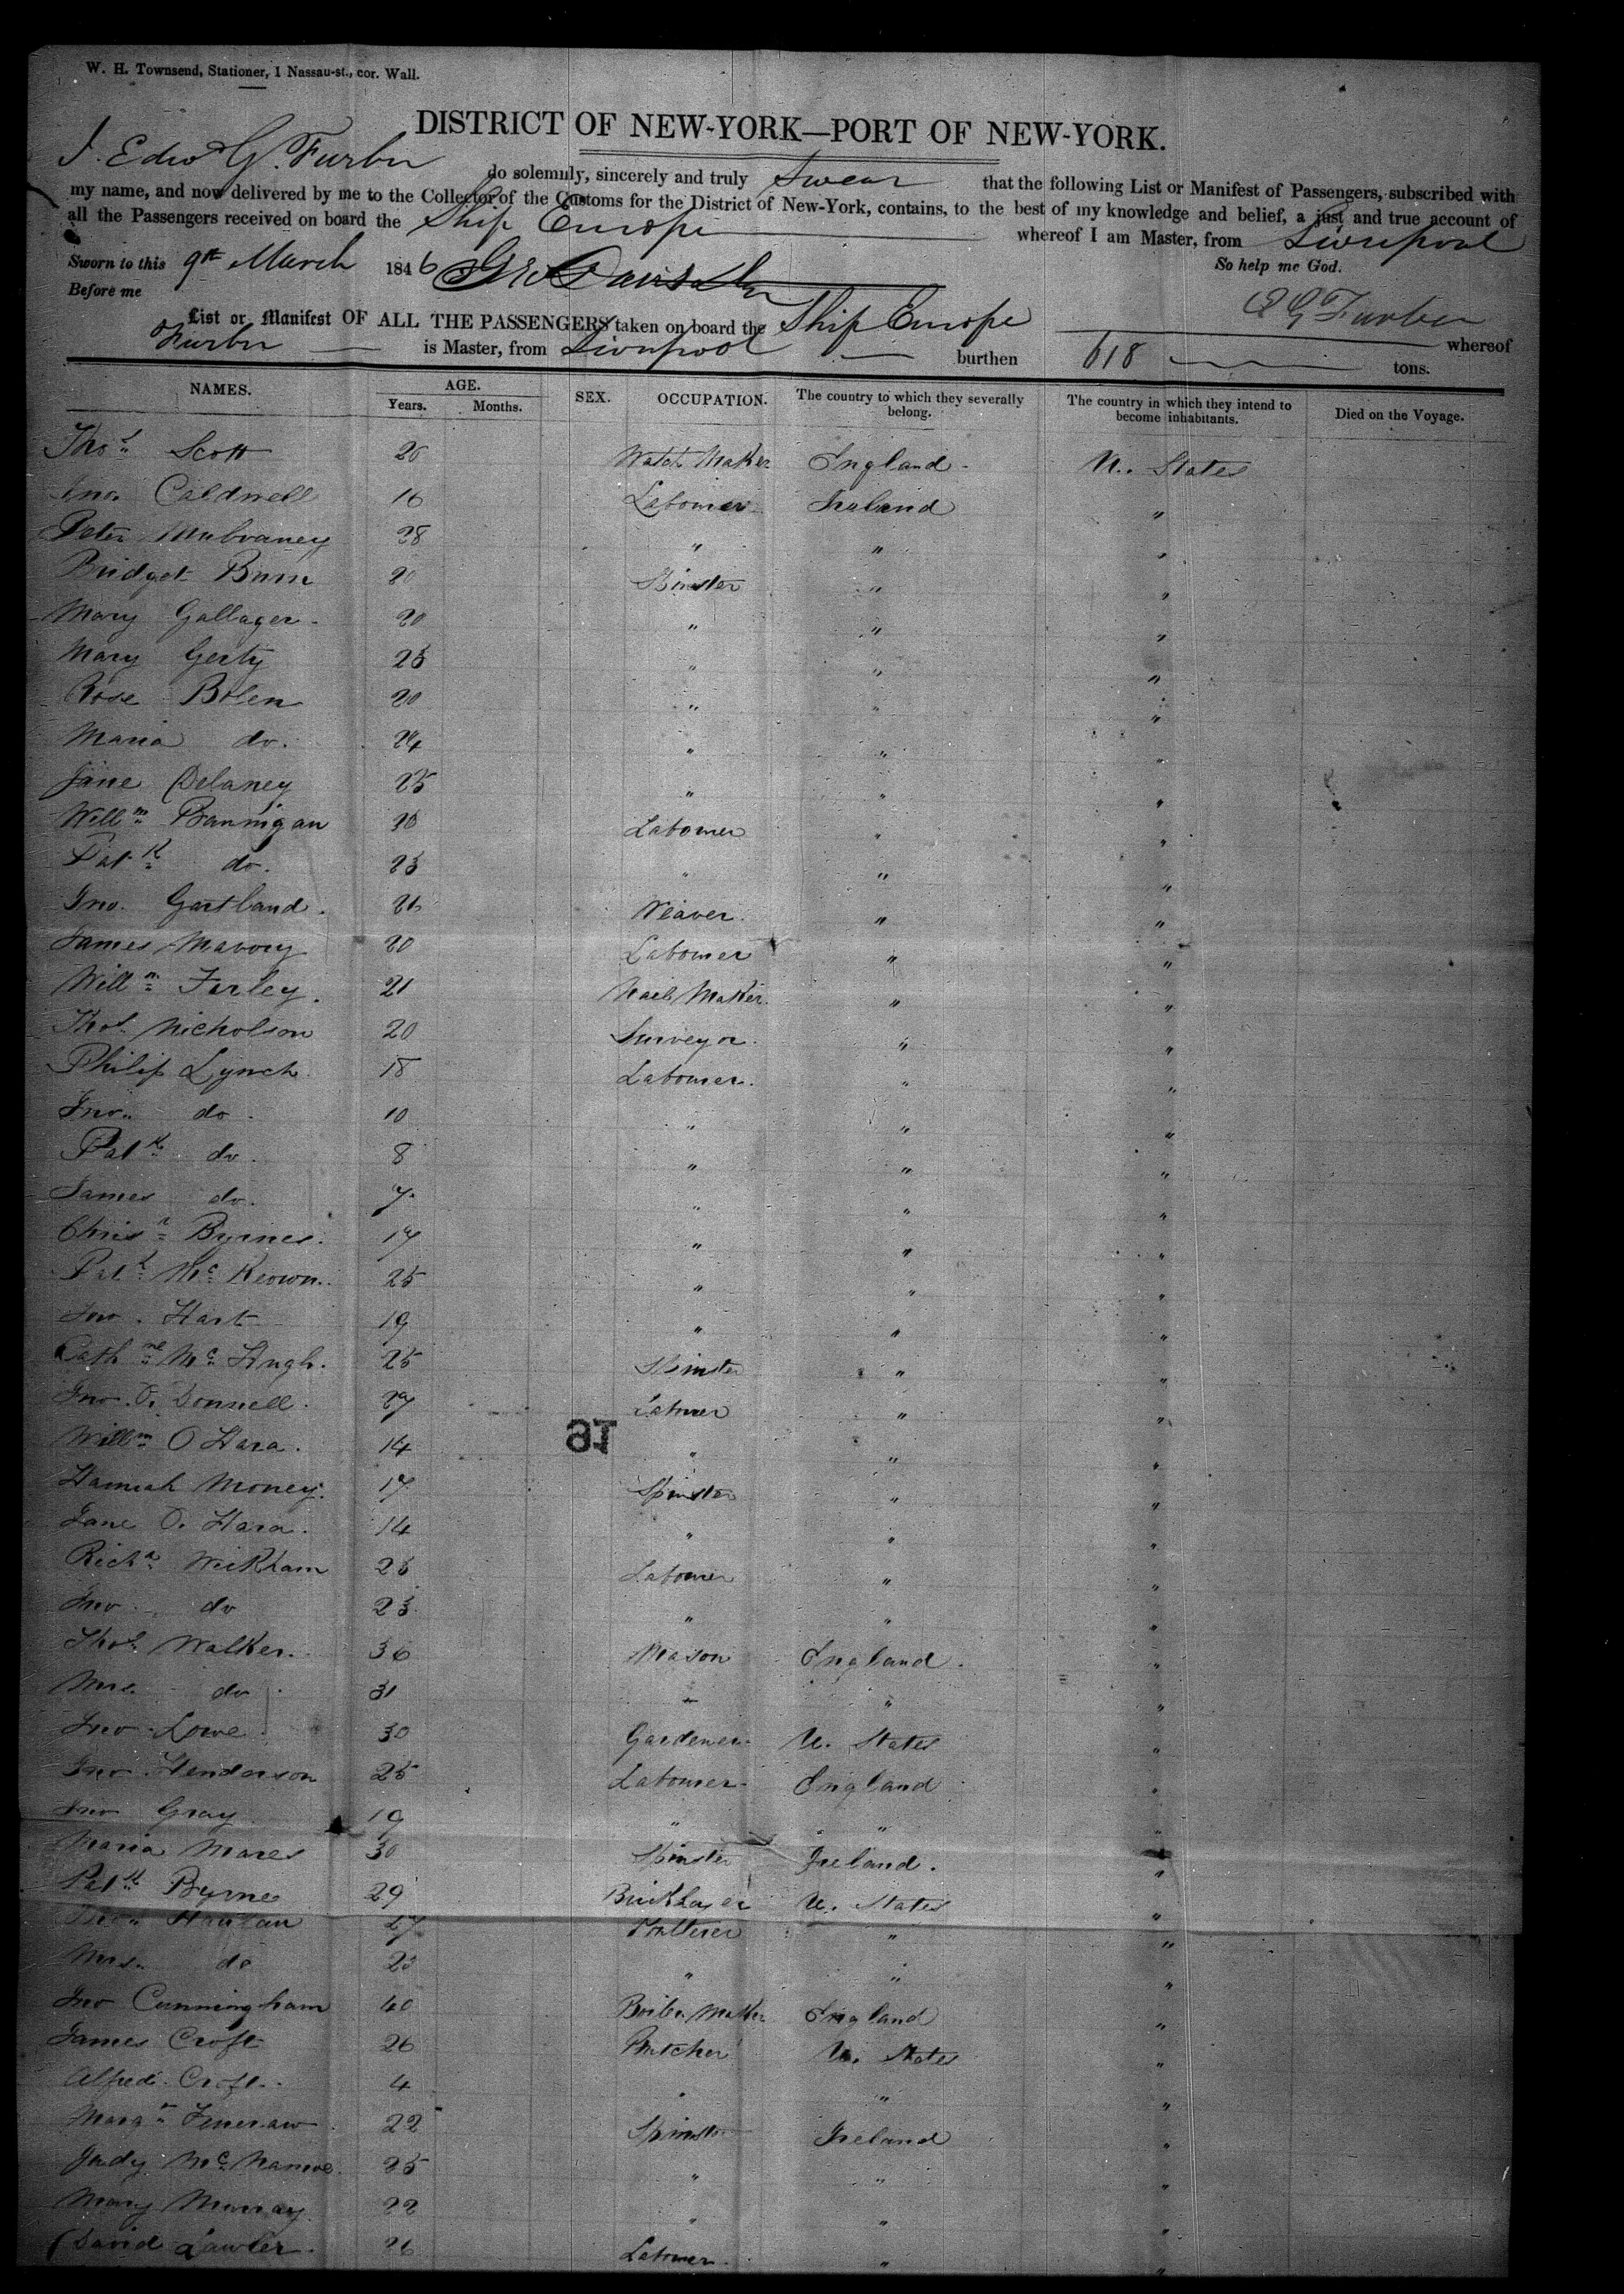 W. H. Townsend, Stationer, 1 Nassau-st., cor. Wall.
DISTRICT OF NEW-YORK—PORT OF NEW-YORK.
I. Edwd G. Furber do solemnly, sincerely and truly Swear that the following List or Manifest of Passengers, subscribed with
my name, and now delivered by me to the Collector of the Customs for the District of New-York, contains, to the best of my knowledge and belief, a just and true account of
all the Passengers received on board the Ship Europe whereof I am Master, from Liverpool
Sworn to this 9th March 1846 So help me God.
Before me E G Furber
List or Manifest OF ALL THE PASSENGERS taken on board the Ship Europe whereof
Furber is Master, from Liverpool burthen 618 tons.
NAMES. AGE. SEX. OCCUPATION. The country to which they severally belong. The country in which they intend to become inhabitants. Died on the Voyage.
Years. Months.
Thos Scott 26 Watch Maker England U. States
Jno. Caldwell 16 Labourer Ireland "
Peter Mulvaney 28 " " "
Bridget 20 Spinster " "
Mary Gallager 20 " " "
Mary Gerty 25 " " "
Rose Bolen 20 " " "
Maria do. 24 " " "
Jane Delaney 25 " " "
Willm Bannigan Labourer " "
Patk do. 25 " " "
Jno. Gartland Weaver " "
James Mavory 20 Labourer " "
Willm Farley 21 Nail Maker " "
Thos Nicholson 20 Surveyor " "
Philip Lynch 18 Labourer " "
Jno. do. 10 " " "
Patk do. 8 " " "
James do. 7 " " "
Chrisr Byrnes 17 " " "
Patk McKeown 25 " " "
Jno. Hart 19 " " "
Cathne McHugh 25 Spinster " "
Jno. O. Donnell 27 Labourer " "
91
Willm O Hara 14 " " "
Hannah Money 17 Spinster " "
Jane O. Hara 14 " " "
Richd Wickham 25 Labourer " "
Jno. do 23 " " "
Thos Walker 36 Mason England "
Mrs. do 31 " " "
Jno Lowe 30 Gardener U. States "
Jno Henderson 25 Labourer England "
Jno Gray 19 " " "
Maria Mares 30 Spinster Ireland "
Patk Byrne 29 Bricklayer U. States "
Hanlan 27 "  "
Mrs. do 23 " " "
Jno Cunningham 40 Boiler Maker England "
James Croft 26 Butcher U. States "
Alfred Croft 4 " " "
Margt 22 Spinster Ireland "
Judy McNamee 25 " " "
Mary Murray 22 " " "
David Lawler 26 Labourer " "